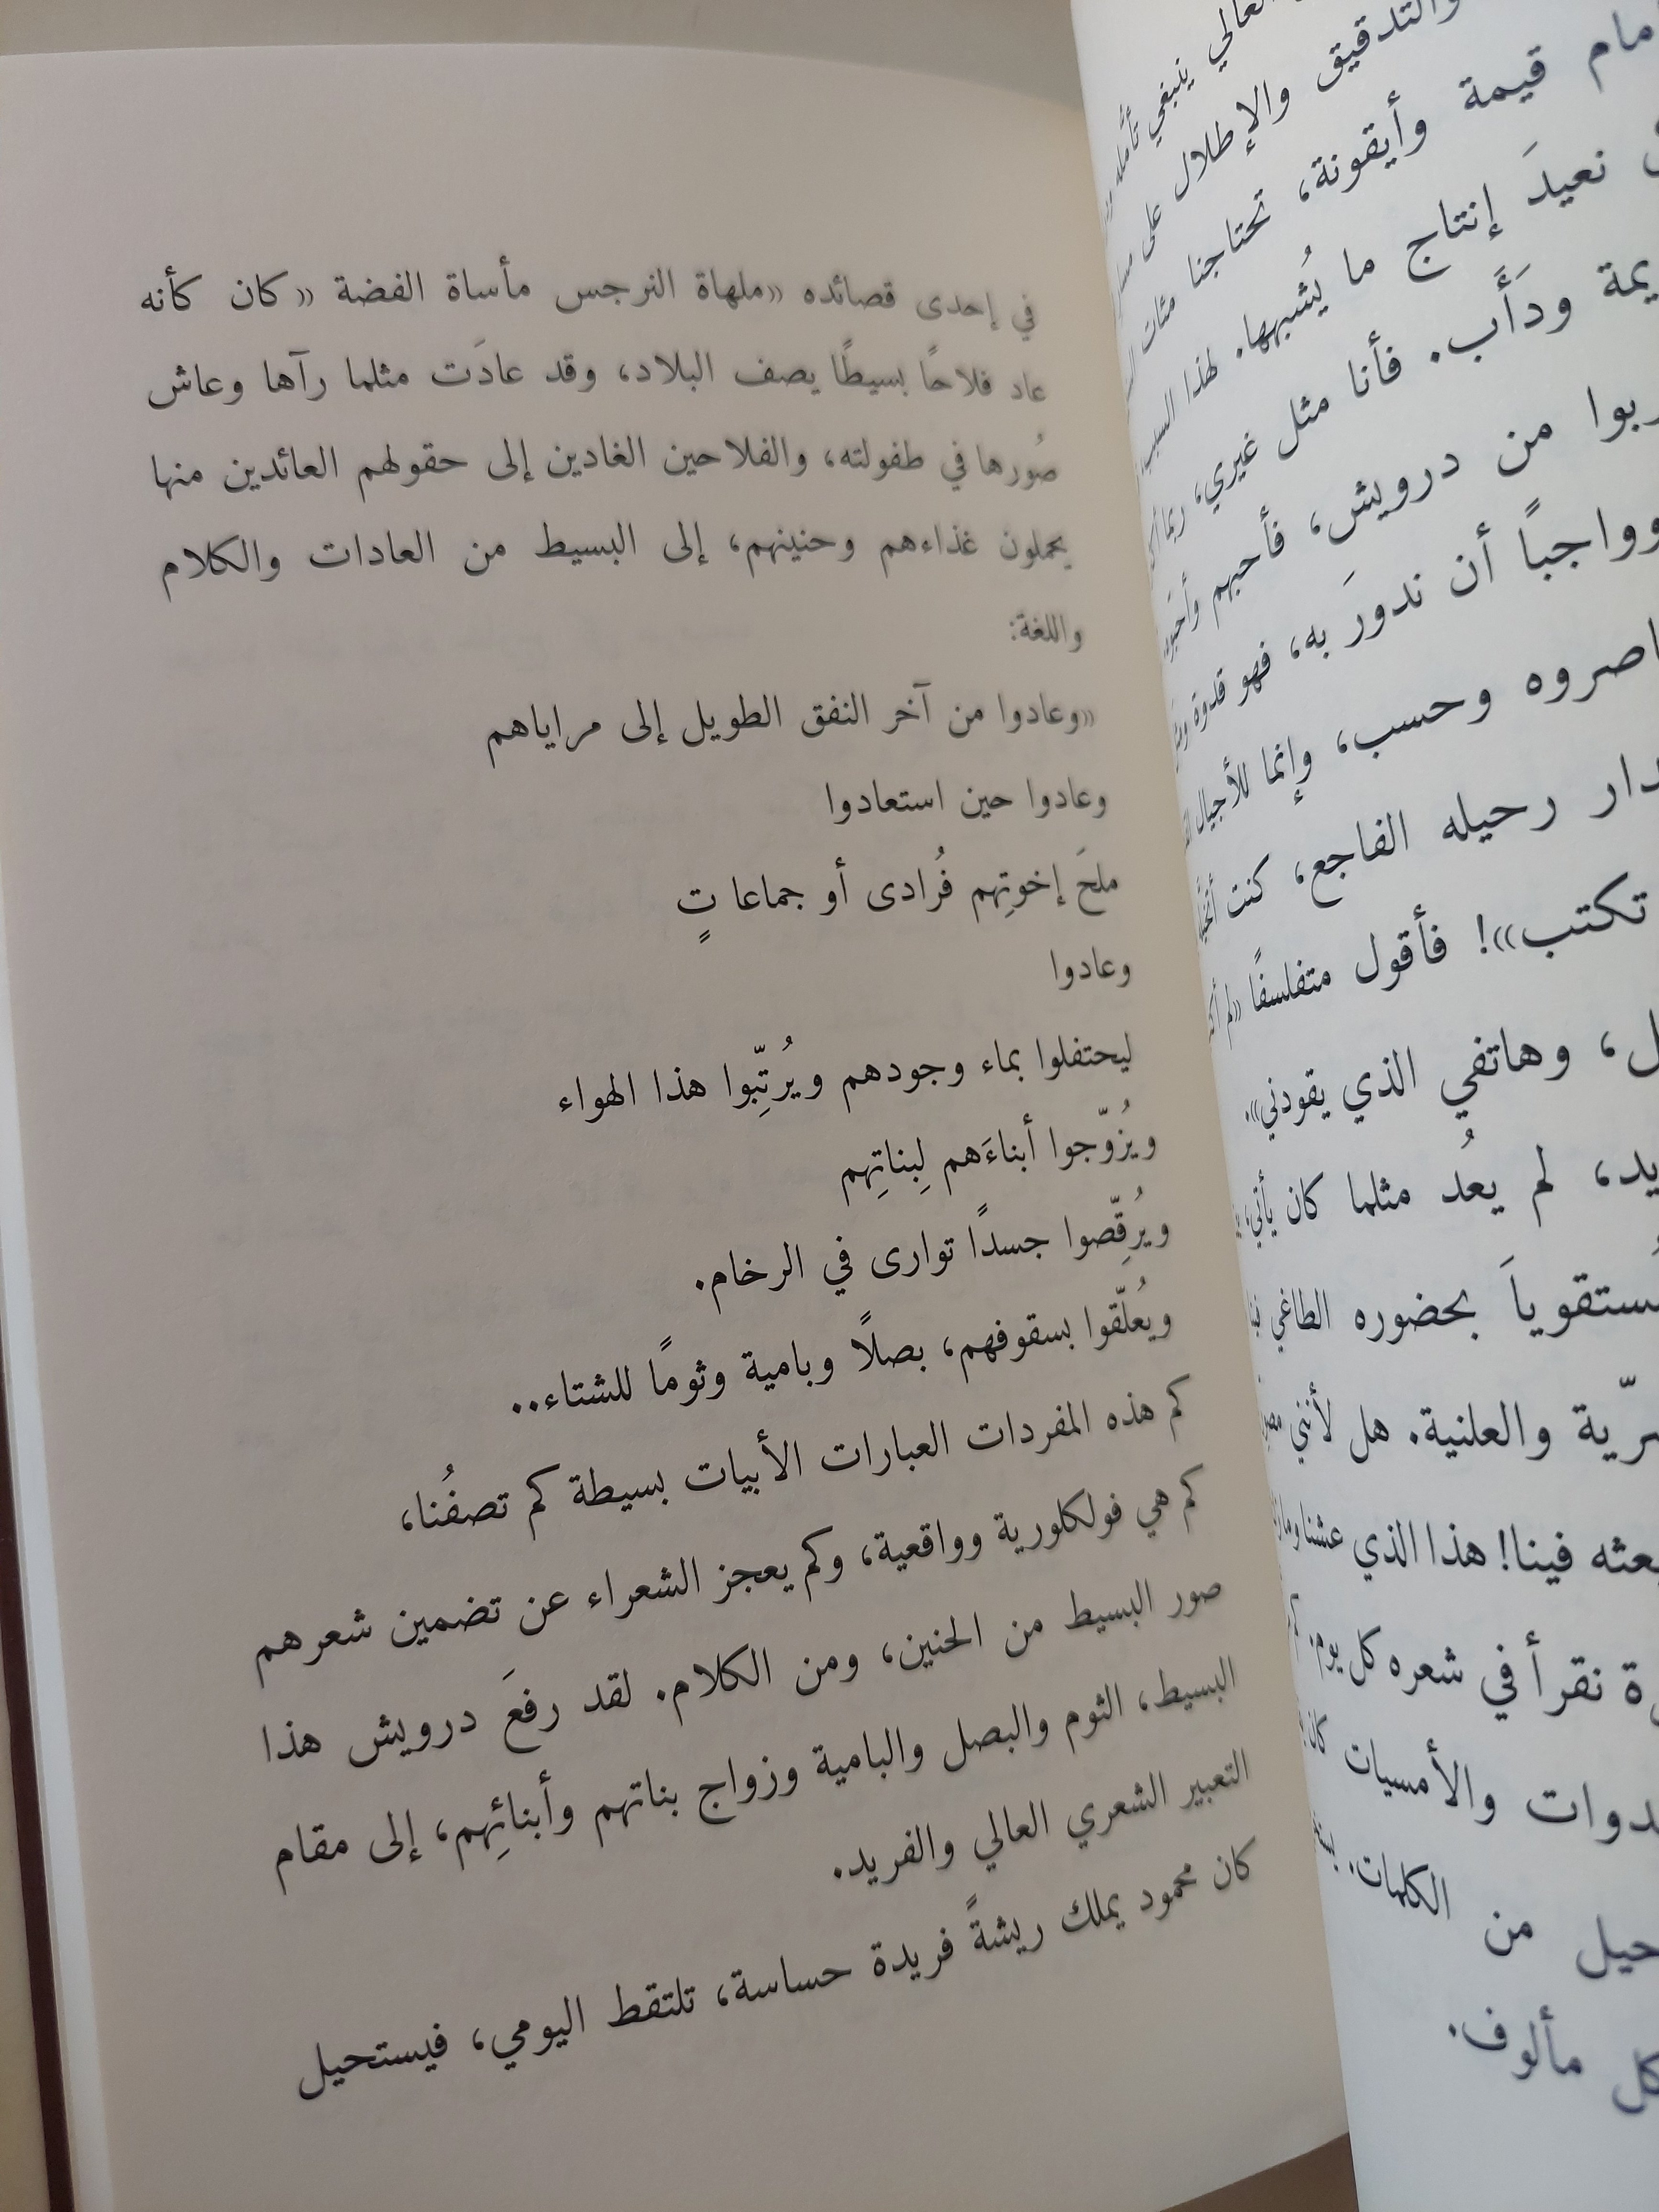 في إحدى قصائده «ملهاة النرجس مأساة الفضة «كان كأنه
عاد فلاحًا بسيطًا يصف البلاد، وقد عادَت مثلما رآها وعاش
صُورها في طفولته، والفلاحين الغادين إلى حقولهم العائدين منها
يحملون غذاءهم وحنينهم، إلى البسيط من العادات والكلام
واللغة:
«وعادوا من آخر النفق الطويل إلى مراياهم
وعادوا حين استعادوا
ملحَ إخوتِهم فُرادى أو جماعا تٍ
وعادوا
ليحتفلوا بماء وجودهم ويُرتِّبوا هذا الهواء
ويُزوّجوا أبناءَهم لِبناتِهم
ويُرقِّصوا جسدًا توارى في الرخام.
ويُعلّقوا بسقوفهم، بصلًا وبامية وثومًا للشتاء..
كم هذه المفردات العبارات الأبيات بسيطة كم تصفُنا،
كم هي فولكلورية وواقعية، وكم يعجز الشعراء عن تضمين شعرهم
صور البسيط من الحنين، ومن الكلام. لقد رفعَ درويش هذا
البسيط، الثوم والبصل والبامية وزواج بناتهم وأبنائِهم، إلى مقام
التعبير الشعري العالي والفريد.
كان محمود يملك ريشةً فريدة حساسة، تلتقط اليومي، فيستحيل
العالي ينبغي
والتدقيق والإطلال على
قيمة وأيقونة، تحتاجنا مئات
نعيدَ إنتاج ما يُشبهها. لهذا السبب
ودَأَب. فأنا مثل غيري، ربما
من درويش، فأحبهم
وواجباً أن ندورَ به، فهو قدوة
وحسب، وإنما للأجيال
رحيله الفاجع، كنت
تكتب»! فأقول متفلسفًا «لم
وهاتفي الذي يقودني».
لم يعُد مثلما كان يأتي،
بحضوره الطاغي
والعلنية. هل لأنني
فينا! هذا الذي عشنا
نقرأ في شعره كل يوم.
والأمسيات
من الكلمات.
مألوف.